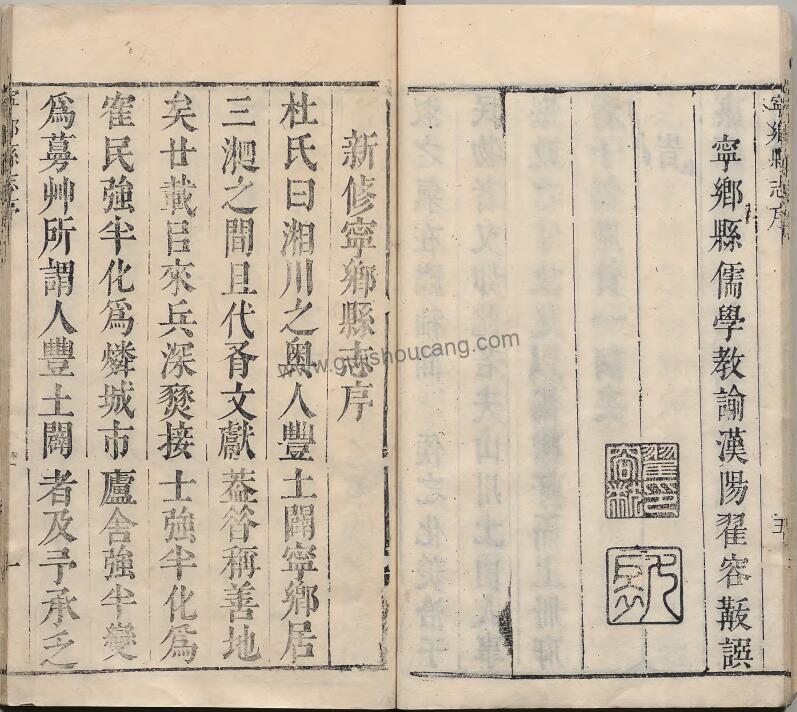 寧鄉縣志序
寧鄉縣儒學教諭漢陽翟容黻譔
新修寧鄉縣志序
杜氏曰湘川之奥人豐土闢寧鄉居
三湘之間且代有文獻葢咎稱善地
矣廿載㠯來兵深燹接士強半化爲
寉民強半化爲燐城市廬舍強半變
爲蓦艸所謂人豐土闢者及予承乏
寧鄉縣志序
一
www.gujishoucang.com